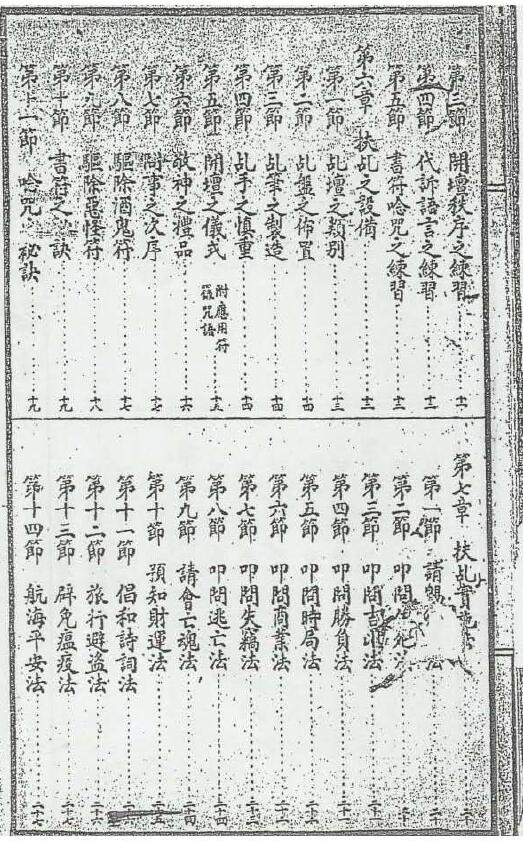 第三節 開壇秩序之練習 十一
第四節 代訴語言之練習 十二
第五節 書符唸咒之練習 十二
第六章 扶乩之設備 十二
第一節 乩壇之類别 十三
第二節 乩盤之佈置 十四
第三節 乩筆之製造 十四
第四節 乩手之慎重 十四
第五節 開壇之儀式 附應用符籙咒語 十五
第六節 敬神之禮品 十六
第七節 問事之次序 十七
第八節 驅除酒鬼符 十七
第九節 驅除惡怪符 十八
第十節 書符之 訣 十九
第十一節 唸咒 秘訣 十九
第七章 扶乩實
第一節 請 法
第二節 叩問 死法
第三節 叩問吉凶法
第四節 叩問勝負法
第五節 叩問時局法
第六節 叩問商業法
第七節 叩問失竊法
第八節 叩問逃亡法
第九節 請會亡魂法 二四
第十節 預知財運法 二五
第十一節 倡和詩詞法
第十二節 旅行避盜法 二六
第十三節 辟免瘟疫法 二七
第十四節 航海平安法 二七